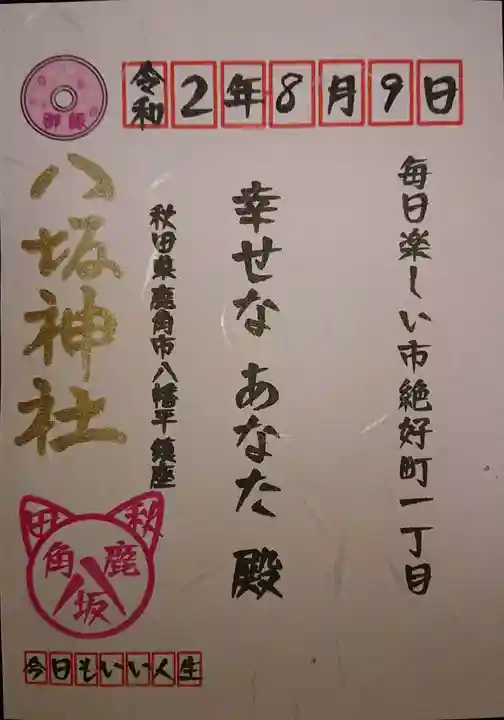 令和2年8月9日
毎日楽しい市絶好町一丁目
幸せな あなた 殿
秋田県鹿角市八幡平 鎮座
八坂神社
御飯
秋田
鹿角
八坂
今日もいい人生